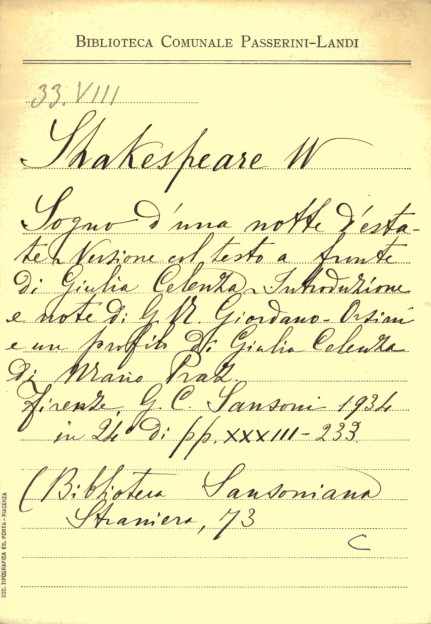 BIBLIOTECA COMUNALE PASSERINI-LANDI
33.VIII
Shakespeare W
Sogno d'una notte d'esta-
te. Versione col testo a fronte
di Giulia Celenza. Introduzione
e note di G. N. Giordano-Orsini
e un profilo di Giulia Celenza
di Mario Praz.
Firenze, G. C. Sansoni 1934
in 24º di pp. XXXIII-233
(Biblioteca Sansoniana
Straniera, 73
C
SOC. TIPOGRAFICA ED. PORTA - PIACENZA